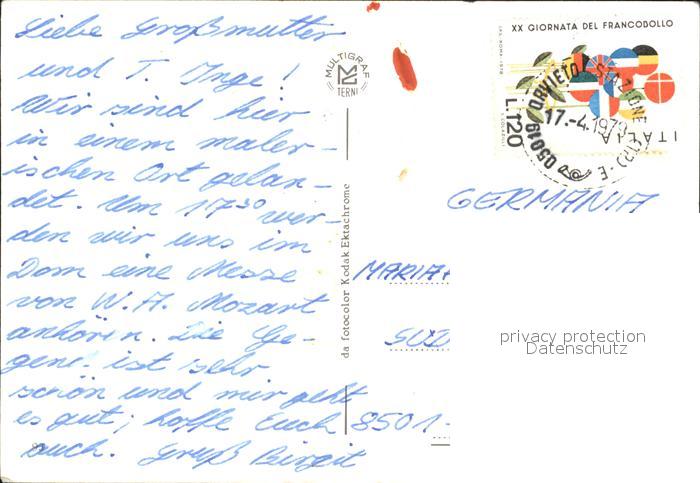 Liebe Großmutter
und T. Inge!
Wir sind hier
in einem maler-
ischen Ort gelan-
det. Um 17³⁰ wer-
den wir uns im
Dom eine Messe
von W. A. Mozart
anhören. Die Ge-
gend ist sehr
schön und mir geht
es gut; hoffe Euch
auch. Gruß Birgit
MULTIGRAF
TERNI
da fotocolor Kodak Ektachrome
XX GIORNATA DEL FRANCOBOLLO
I.P.S. ROMA 1978
ITALIA
L.120
05019 ORVIETO STAZIONE (TR) - E
17.-4.1979
GERMANIA
MARIA
SÜD
8501-
privacy protection
Datenschutz